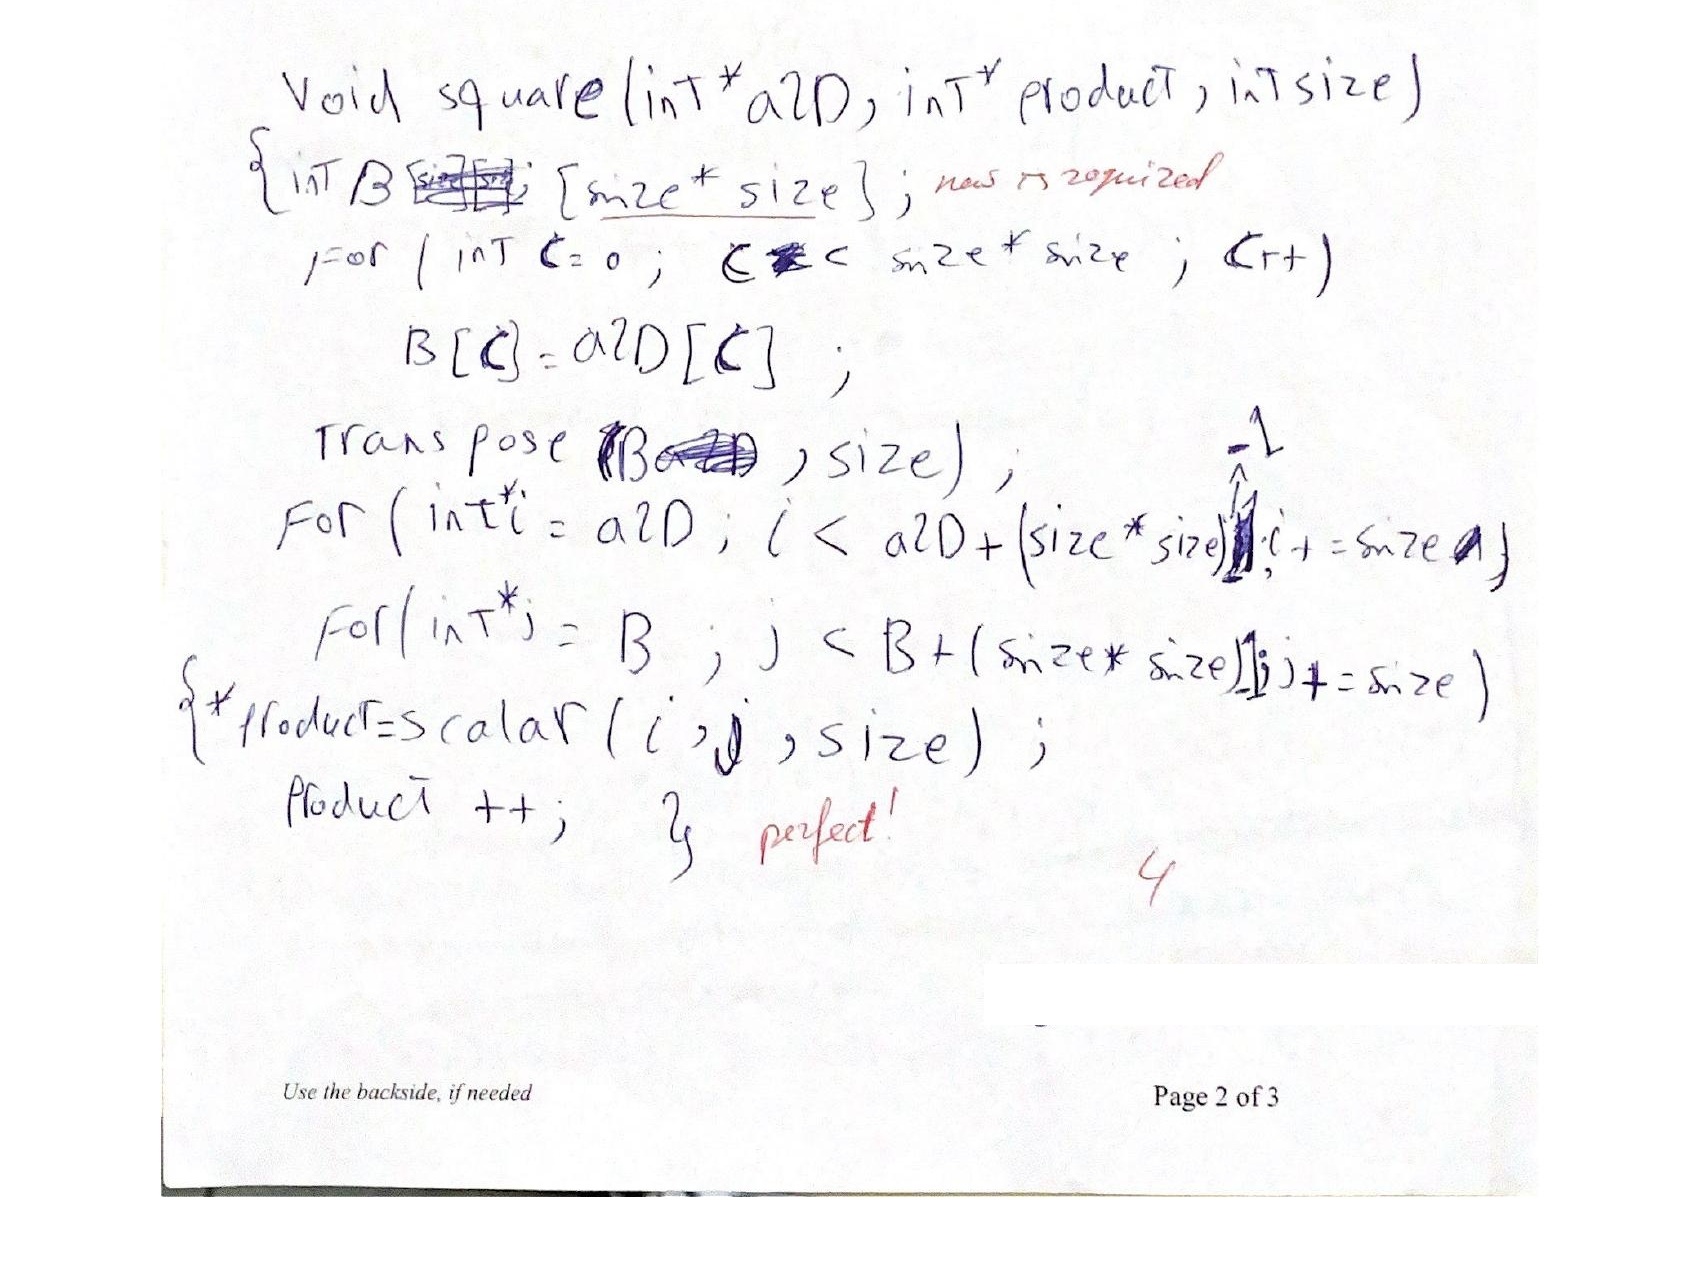 Void square (int* a2D, int* product, int size)
{ int B [size * size]; new is required
For ( int C = 0 ; C < size * size ; C++)
B[C] = a2D[C] ;
Transpose (B , size) ;
-1
For ( int* i = a2D ; i < a2D + (size * size) ; i += size )
For ( int* j = B ; j < B + ( size * size) ; j += size )
{ *product = scalar ( i , j , size ) ;
Product ++ ; } perfect!
4
Use the backside, if needed Page 2 of 3